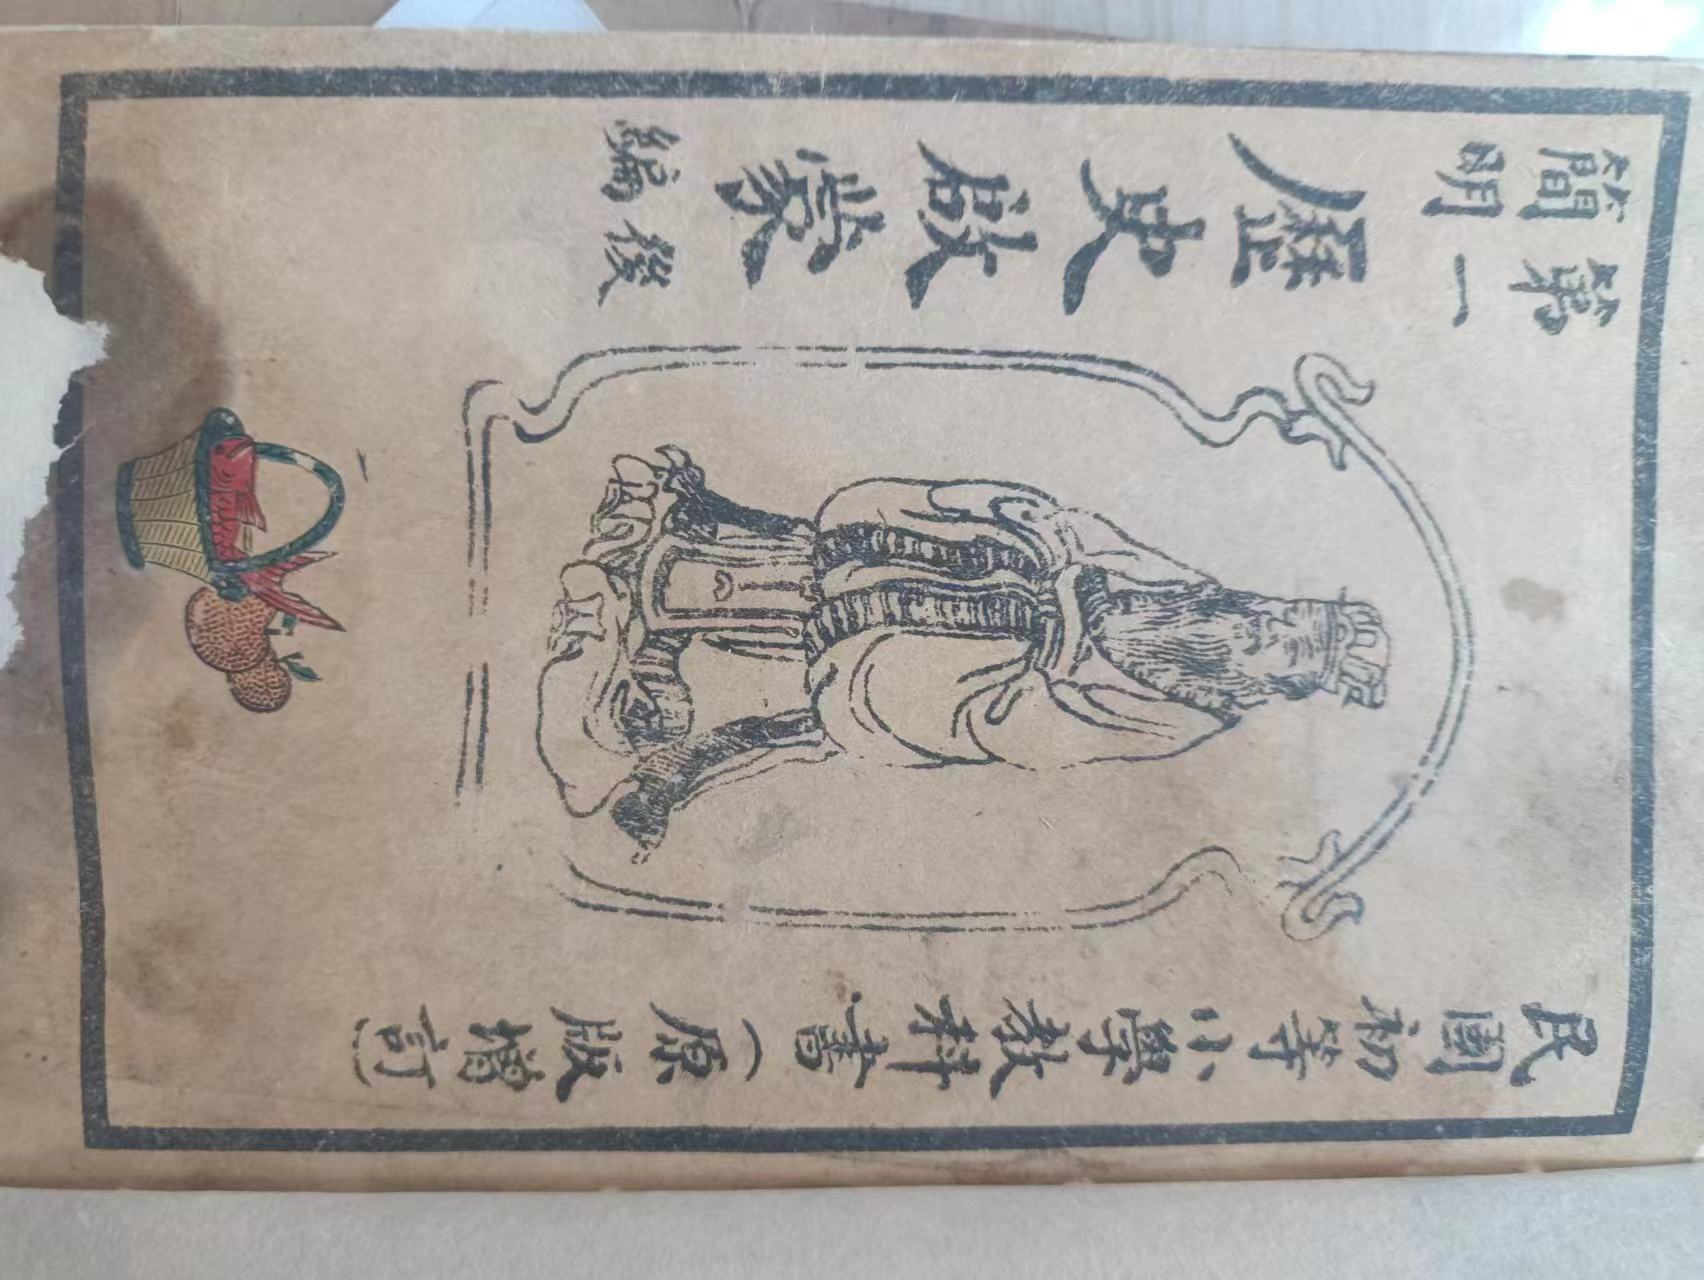 民國初等小學教科書(原版增訂)
第一
簡明
歷史啟蒙
後編